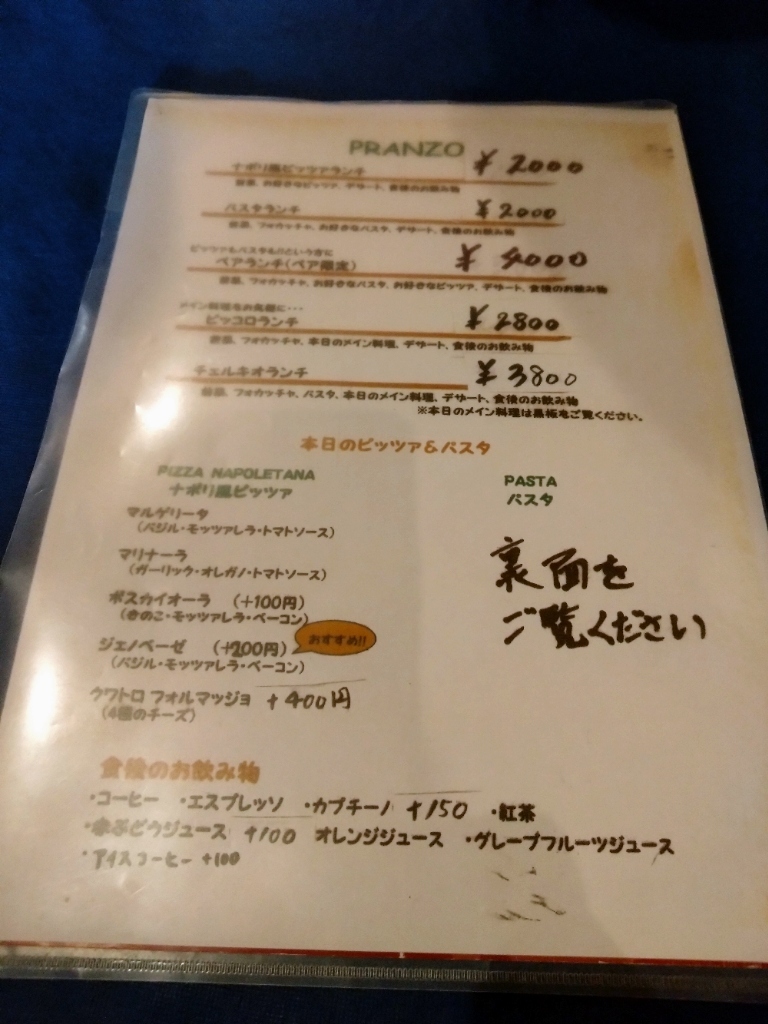 PRANZO
ナポリ風ピッツァランチ ¥2000
前菜、お好きなピッツァ、デザート、食後のお飲み物
パスタランチ ¥2000
前菜、フォカッチャ、お好きなパスタ、デザート、食後のお飲み物
ピッツァもパスタも!!という方に
ペアランチ(ペア限定) ¥4000
前菜、フォカッチャ、お好きなパスタ、お好きなピッツァ、デザート、食後のお飲み物
メイン料理をお気軽に・・・
ピッコロランチ ¥2800
前菜、フォカッチャ、本日のメイン料理、デザート、食後のお飲み物
チェルキオランチ ¥3800
前菜、フォカッチャ、パスタ、本日のメイン料理、デザート、食後のお飲み物
※本日のメイン料理は黒板をご覧ください。
本日のピッツァ&パスタ
PIZZA NAPOLETANA
ナポリ風ピッツァ
マルゲリータ
(バジル・モッツァレラ・トマトソース)
マリナーラ
(ガーリック・オレガノ・トマトソース)
ボスカイオーラ (+100円)
(きのこ・モッツァレラ・ベーコン)
ジェノベーゼ (+200円) おすすめ!!
(バジル・モッツァレラ・ベーコン)
クワトロ フォルマッジョ +400円
(4種のチーズ)
PASTA
パスタ
裏面を
ご覧ください
食後のお飲み物
・コーヒー ・エスプレッソ ・カプチーノ +150 ・紅茶
・赤ぶどうジュース +100 オレンジジュース ・グレープフルーツジュース
・アイスコーヒー +100